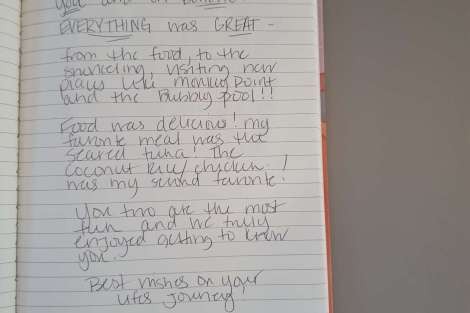 you and on
EVERYTHING was GREAT -
from the food, to the
snorkeling, visiting new
places like monkey Point
and the Bubbly pool!!
Food was delicious! my
favorite meal was the
seared tuna! The
coconut Rice/chicken
was my second favorite!
You two are the most
fun and we truly
enjoyed getting to know
you.
Best wishes on your
lifes journey